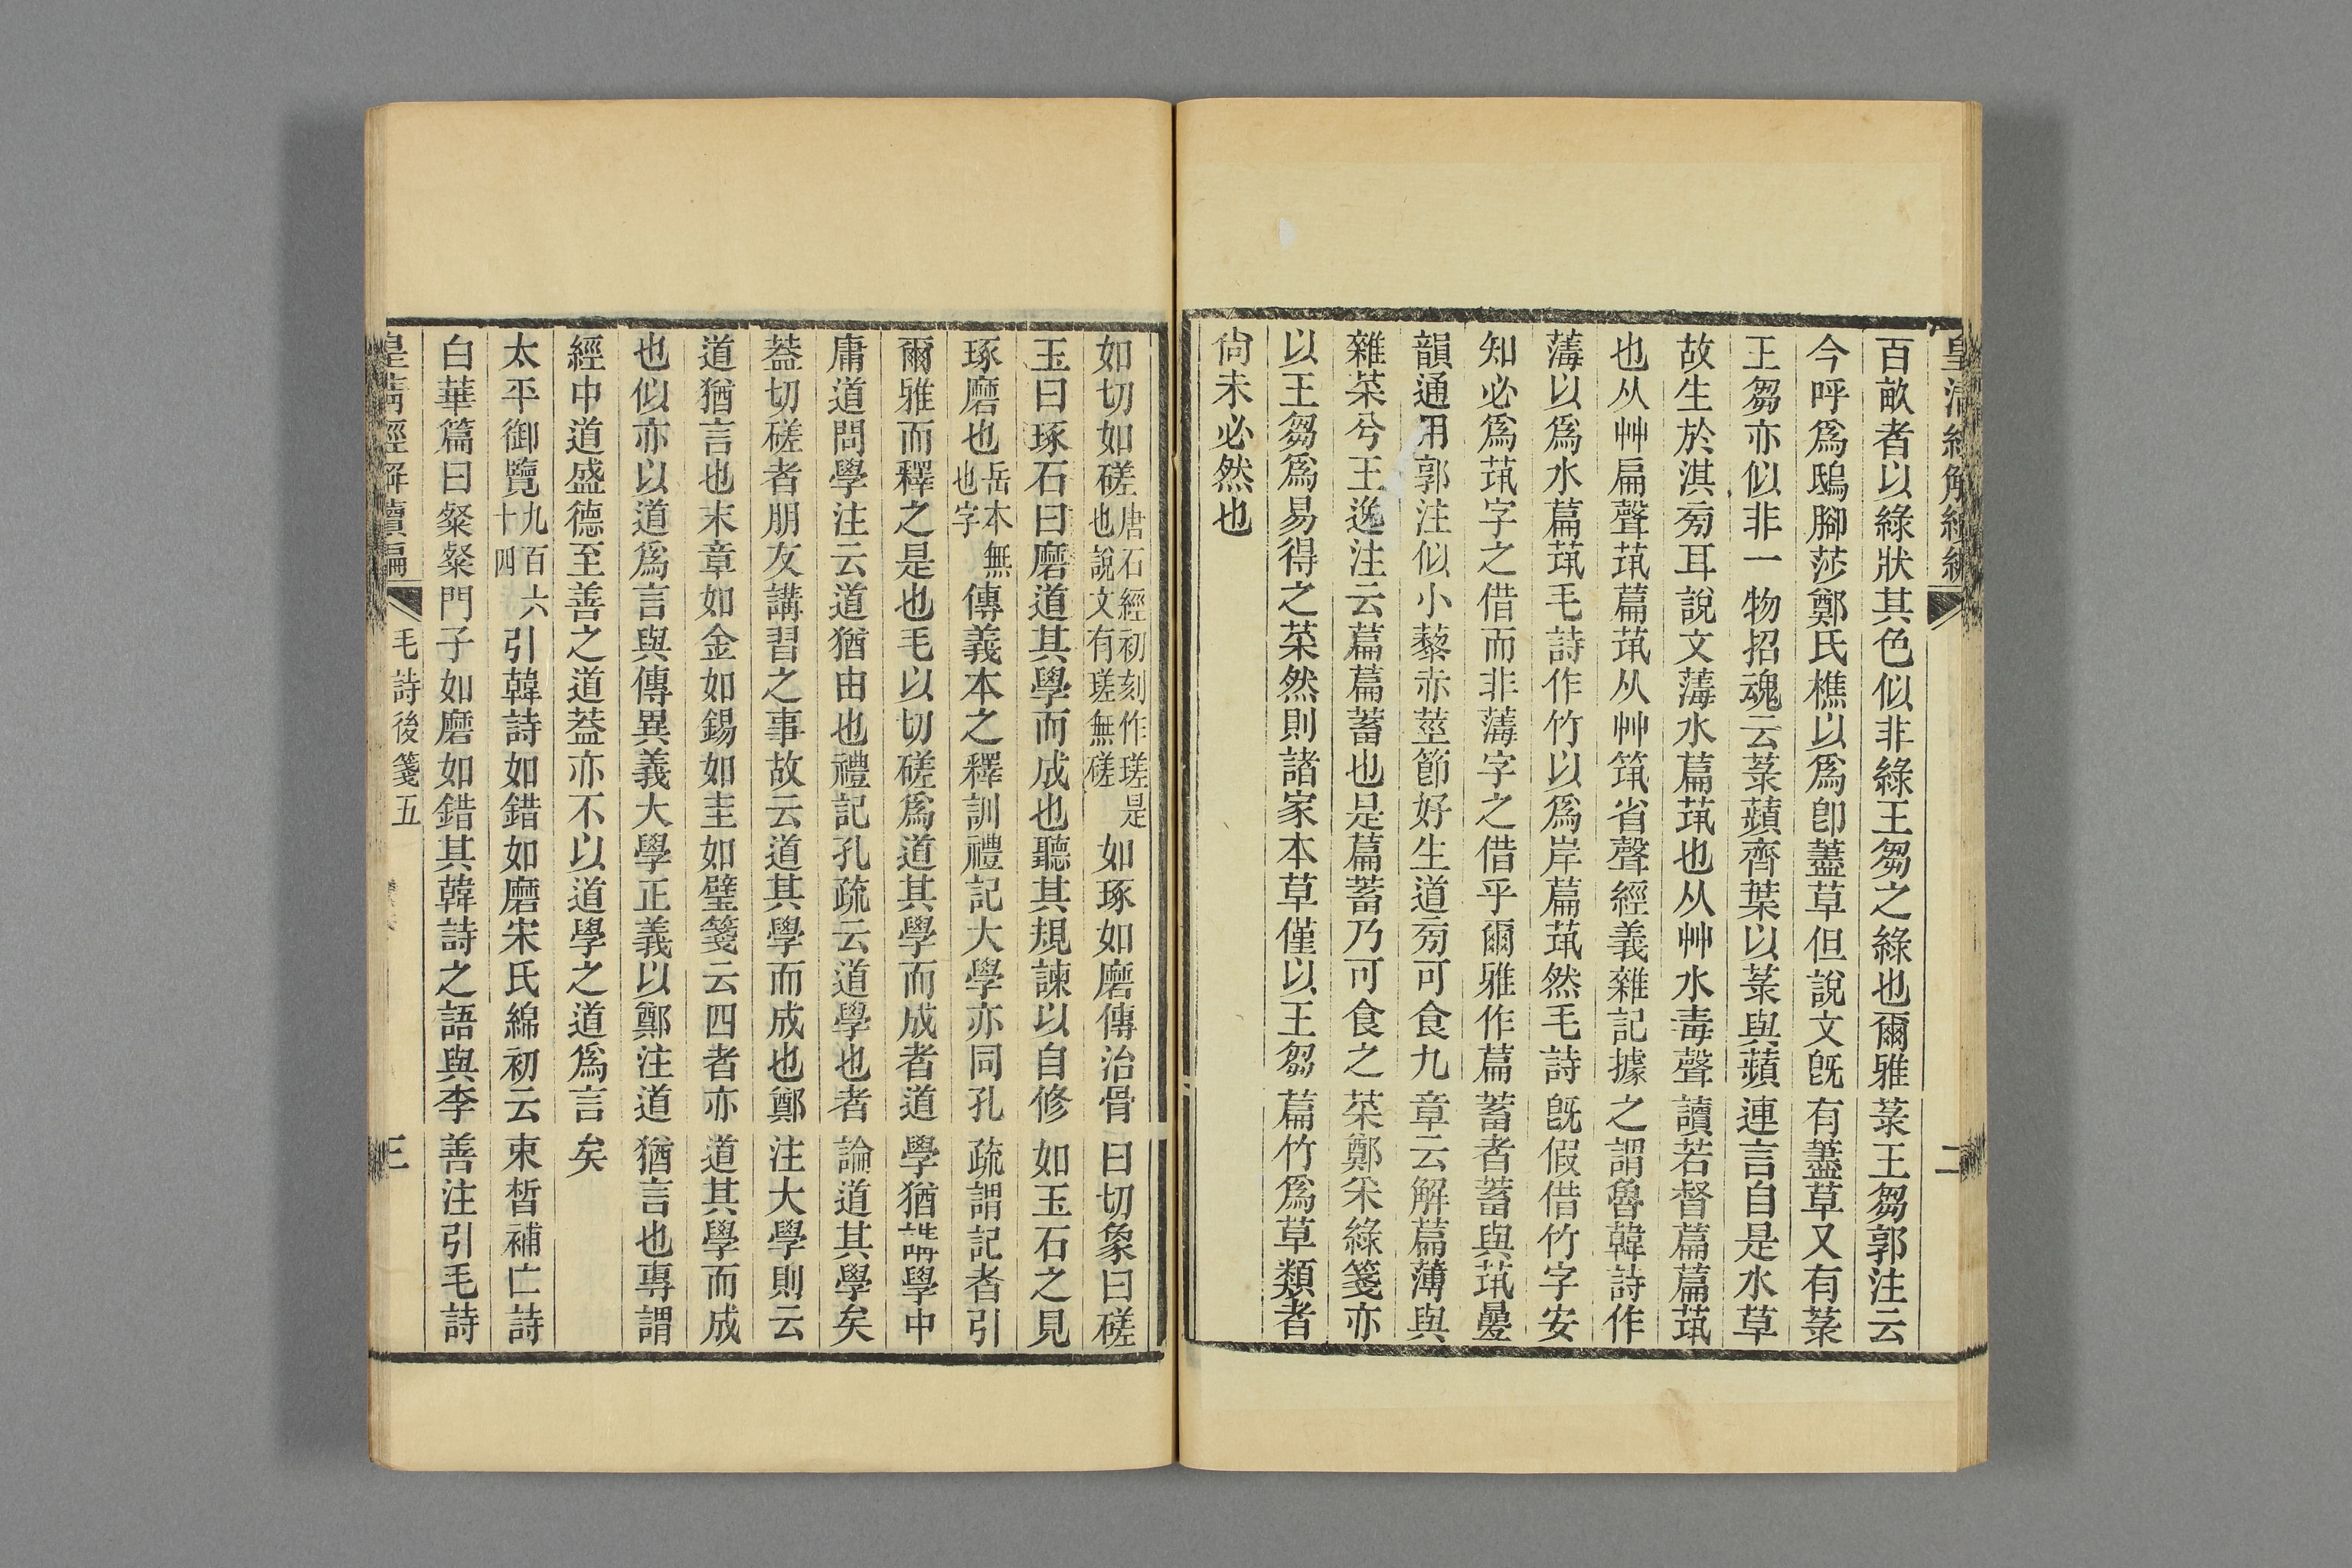 皇清經解續編
二
百畝者以綠狀其色似非綠王芻之綠也爾雅菉王芻郭注云
今呼爲鴟腳莎鄭氏樵以爲卽藎草但說文旣有藎草又有菉
王芻亦似非一物招魂云菉蘋齊葉以菉與蘋連言自是水草
故生於淇㫄耳說文薄水萹茿也从艸水毒聲讀若督萹萹茿
也从艸扁聲茿萹茿从艸筑省聲經義雜記據之謂魯韓詩作
薄以爲水萹茿毛詩作竹以爲岸萹茿然毛詩旣假借竹字安
知必爲茿字之借而非薄字之借乎爾雅作萹蓄者蓄與茿㬪
韻通用郭注似小藜赤莖節好生道㫄可食九章云解萹薄與
雜菜兮王逸注云萹萹蓄也是萹蓄乃可食之菜鄭采綠箋亦
以王芻爲易得之菜然則諸家本草僅以王芻萹竹爲草類者
尙未必然也
如切如磋唐石經初刻作瑳是也說文有瑳無磋如琢如磨傳治骨曰切象曰磋
玉曰琢石曰磨道其學而成也聽其規諫以自修如玉石之見
琢磨也岳本無也字傳義本之釋訓禮記大學亦同孔疏謂記者引
爾雅而釋之是也毛以切磋爲道其學而成者道學猶講學中
庸道問學注云道猶由也禮記孔疏云道學也者論道其學矣
葢切磋者朋友講習之事故云道其學而成也鄭注大學則云
道猶言也末章如金如錫如圭如璧箋云四者亦道其學而成
也似亦以道爲言與傳異義大學正義以鄭注道猶言也專謂
經中道盛德至善之道葢亦不以道學之道爲言矣
太平御覽九百六十四引韓詩如錯如磨宋氏綿初云束晳補亡詩
白華篇曰粲粲門子如磨如錯其韓詩之語與李善注引毛詩
皇淸經解續編
毛詩後箋五
三